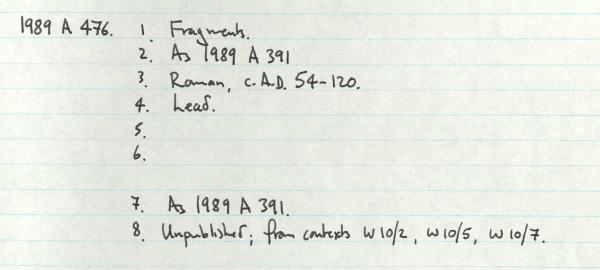 1989 A 476. 1. Fragments.
2. As 1989 A 391
3. Roman, c. A.D. 54-120.
4. Lead.
5.
6.
7. As 1989 A 391.
8. Unpublished; from contexts W 10/2, W 10/5, W 10/7.